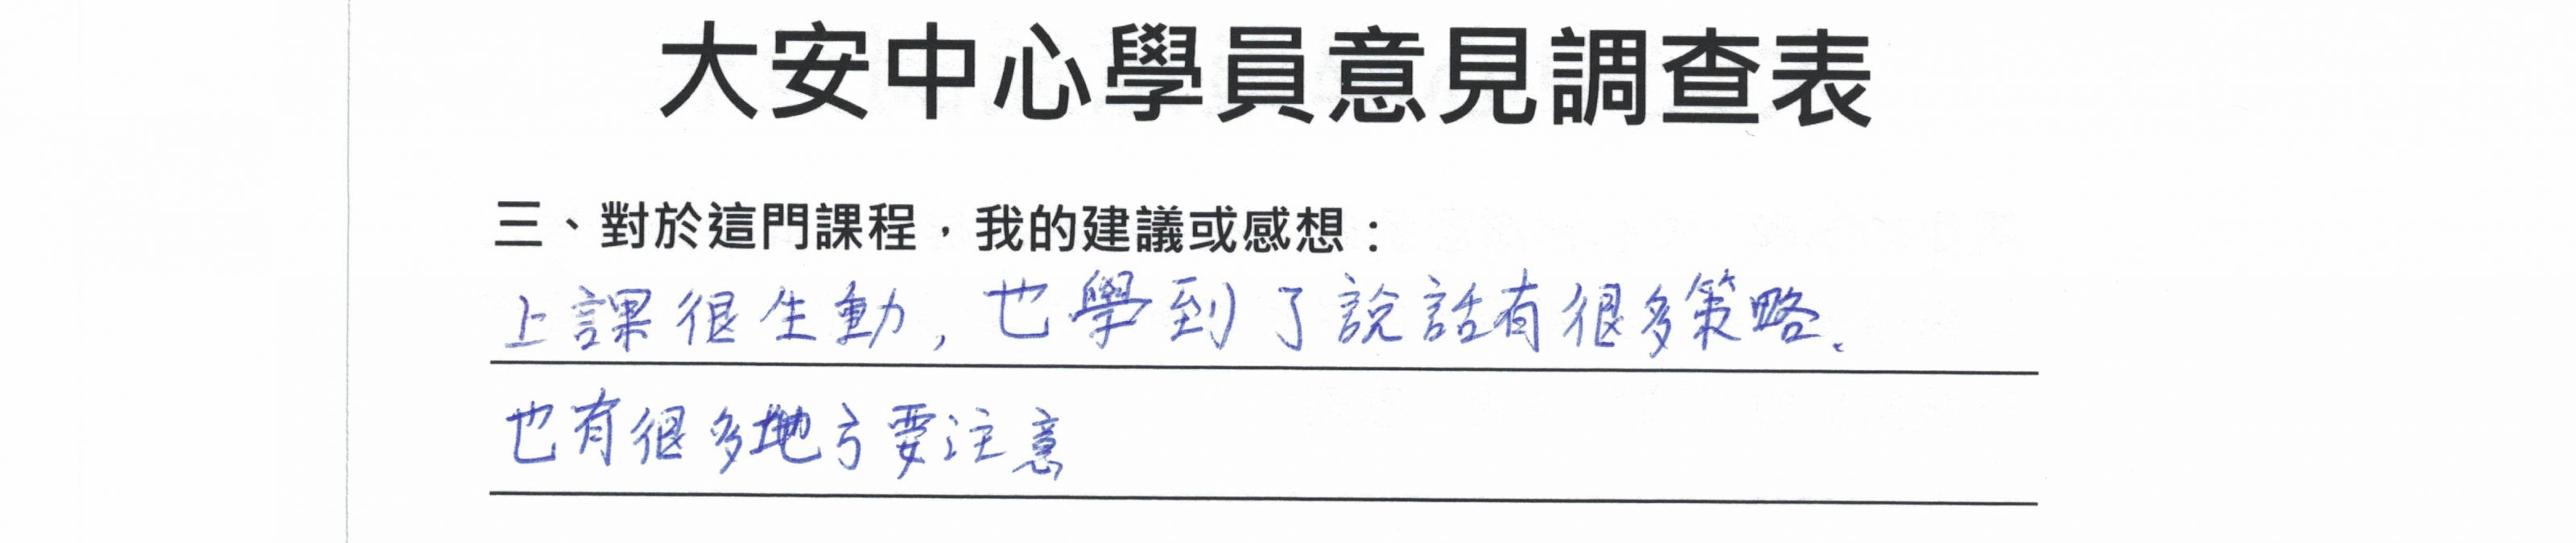 大安中心學員意見調查表
三、對於這門課程，我的建議或感想：
上課很生動,也學到了說話有很多策略.
也有很多地方要注意